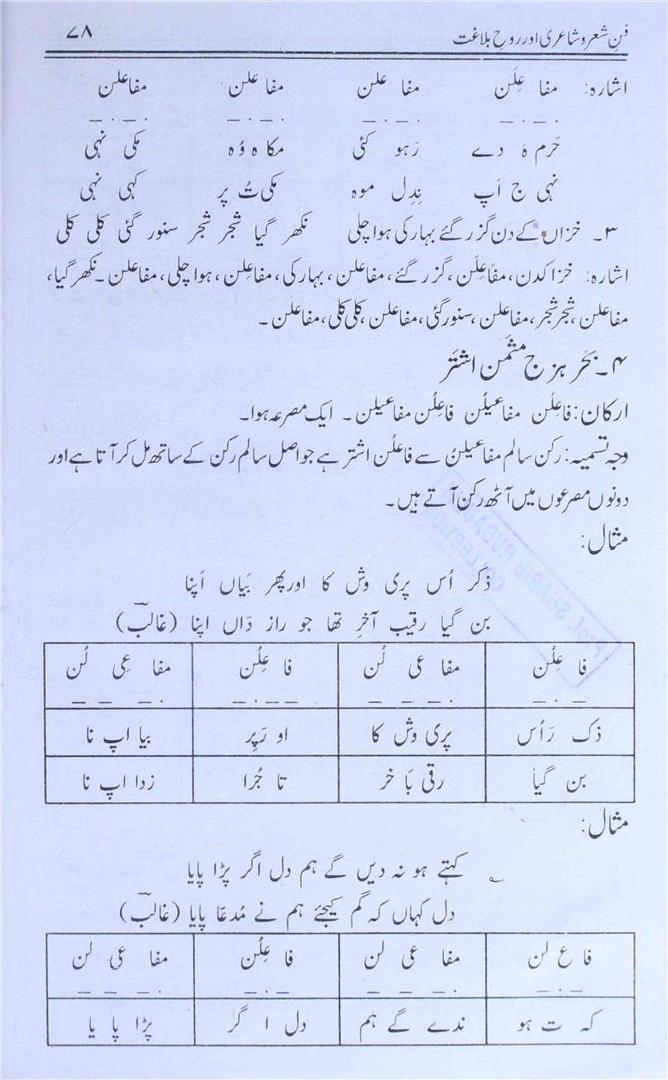 فنِ شعر و شاعری اور روحِ بلاغت ۷۸
اشارہ: مفا عِلَن مفا علن مفا علن مفا علن
خَرم ہَ دے رَہو کئی مکا ہ وُہ مکی نہی
نہی ج اَپ نِدِل موہ مکی تُ پر کہی نہی
۳۔ خزاں کے دن گزر گئے بہار کی ہوا چلی نکھر گیا شجر شجر سنور گئی کلی کلی
اشارہ: خزا کدن، مفاعِلَن، گزر گئے، مفاعلن، بہار کی، مفاعلن، ہوا چلی، مفاعلن۔ نکھر گیا،
مفاعلن، شجر شجر، مفاعلن، سنور گئی، مفاعلن، کلی کلی، مفاعلن۔
۴۔ بحَر ہزج مثمن اشتَر
ارکان: فاعِلُن مفاعیلُن فاعِلُن مفاعیلن۔ ایک مصرعہ ہوا۔
وجہ تسمیہ: رکن سالم مفاعیلنُ سے فاعلُن اشتر ہے جو اصل سالم رکن کے ساتھ مل کر آتا ہے اور
دونوں مصرعوں میں آٹھ رکن آتے ہیں۔
مثال:
ذکر اُس پری وش کا اور پھر بیَاں اَپنا
بن گیا رقیب آخرِ تھا جو راز داں اپنا (غالب)
فا عِلُن مفا عی لُن فا عِلُن مفا عِی لُن
ذک رَ اُس پری وش کا او رَپِر بیا اپ نا
بن گیا رقی بَا خر تا جُرا زدا اپ نا
مثال:
کہتے ہو نہ دیں گے ہم دل اگر پڑا پایا
دل کہاں کہ گم کیجئے ہم نے مُدعّا پایا (غالب)
فا عِ لن مفا عی لن فا عِلُن مفا عی لن
کہ ت ہو ندے گے ہم دل ا گر پڑا پا یا